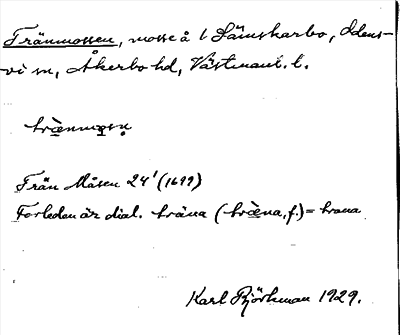 Tränmossen, mosse å l Sämskarbo, Odens-
vi sn, Åkerbo hd, Västmanl. l.
trä̀nmosn̥
Från Måsen 24' (1699)
Förleden är dial. träna (trä̀na, f.) = trana
Karl Björkman 1929.